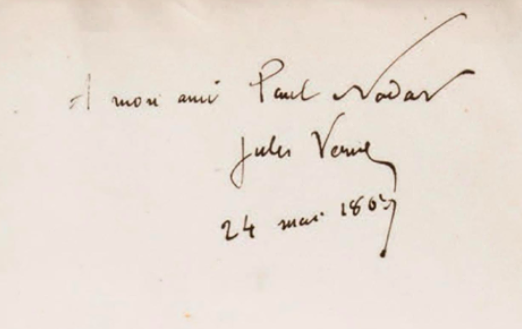 A mon ami Paul Nadar
Jules Verne
24 mai